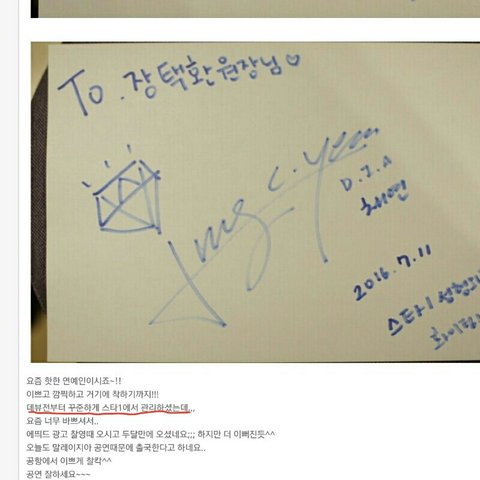 To. 장택환원장님♡
Jung C. Yeon
D.I.A
채연
2016.7.11
스타1성형외
화이팅
요즘 핫한 연예인이시죠~!!
이쁘고 깜찍하고 거기에 착하기까지!!!
데뷔전부터 꾸준하게 스타1에서 관리하셨는데,,,
요즘 너무 바쁘셔서..
에띄드 광고 찰영때 오시고 두달만에 오셨네요;;; 하지만 더 이뻐진듯^^
오늘도 말레이지아 공연때문에 출국한다고 하네요..
공항에서 이쁘게 찰칵^^
공연 잘하세요~~~